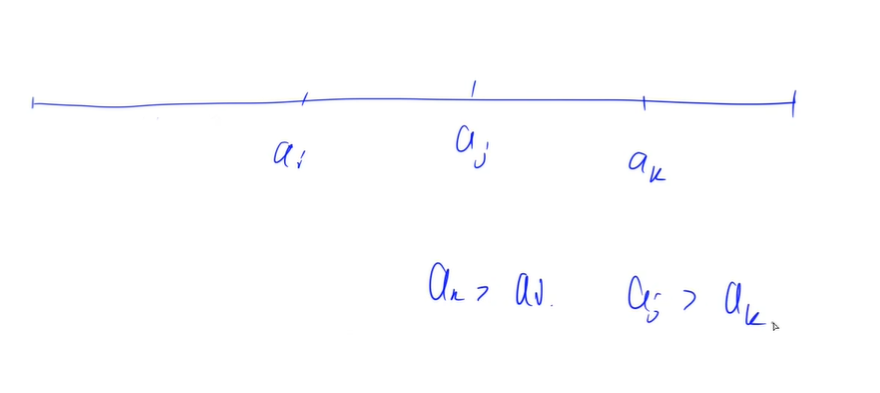 a_i a_j a_k
a_k > a_j. a_j > a_k.